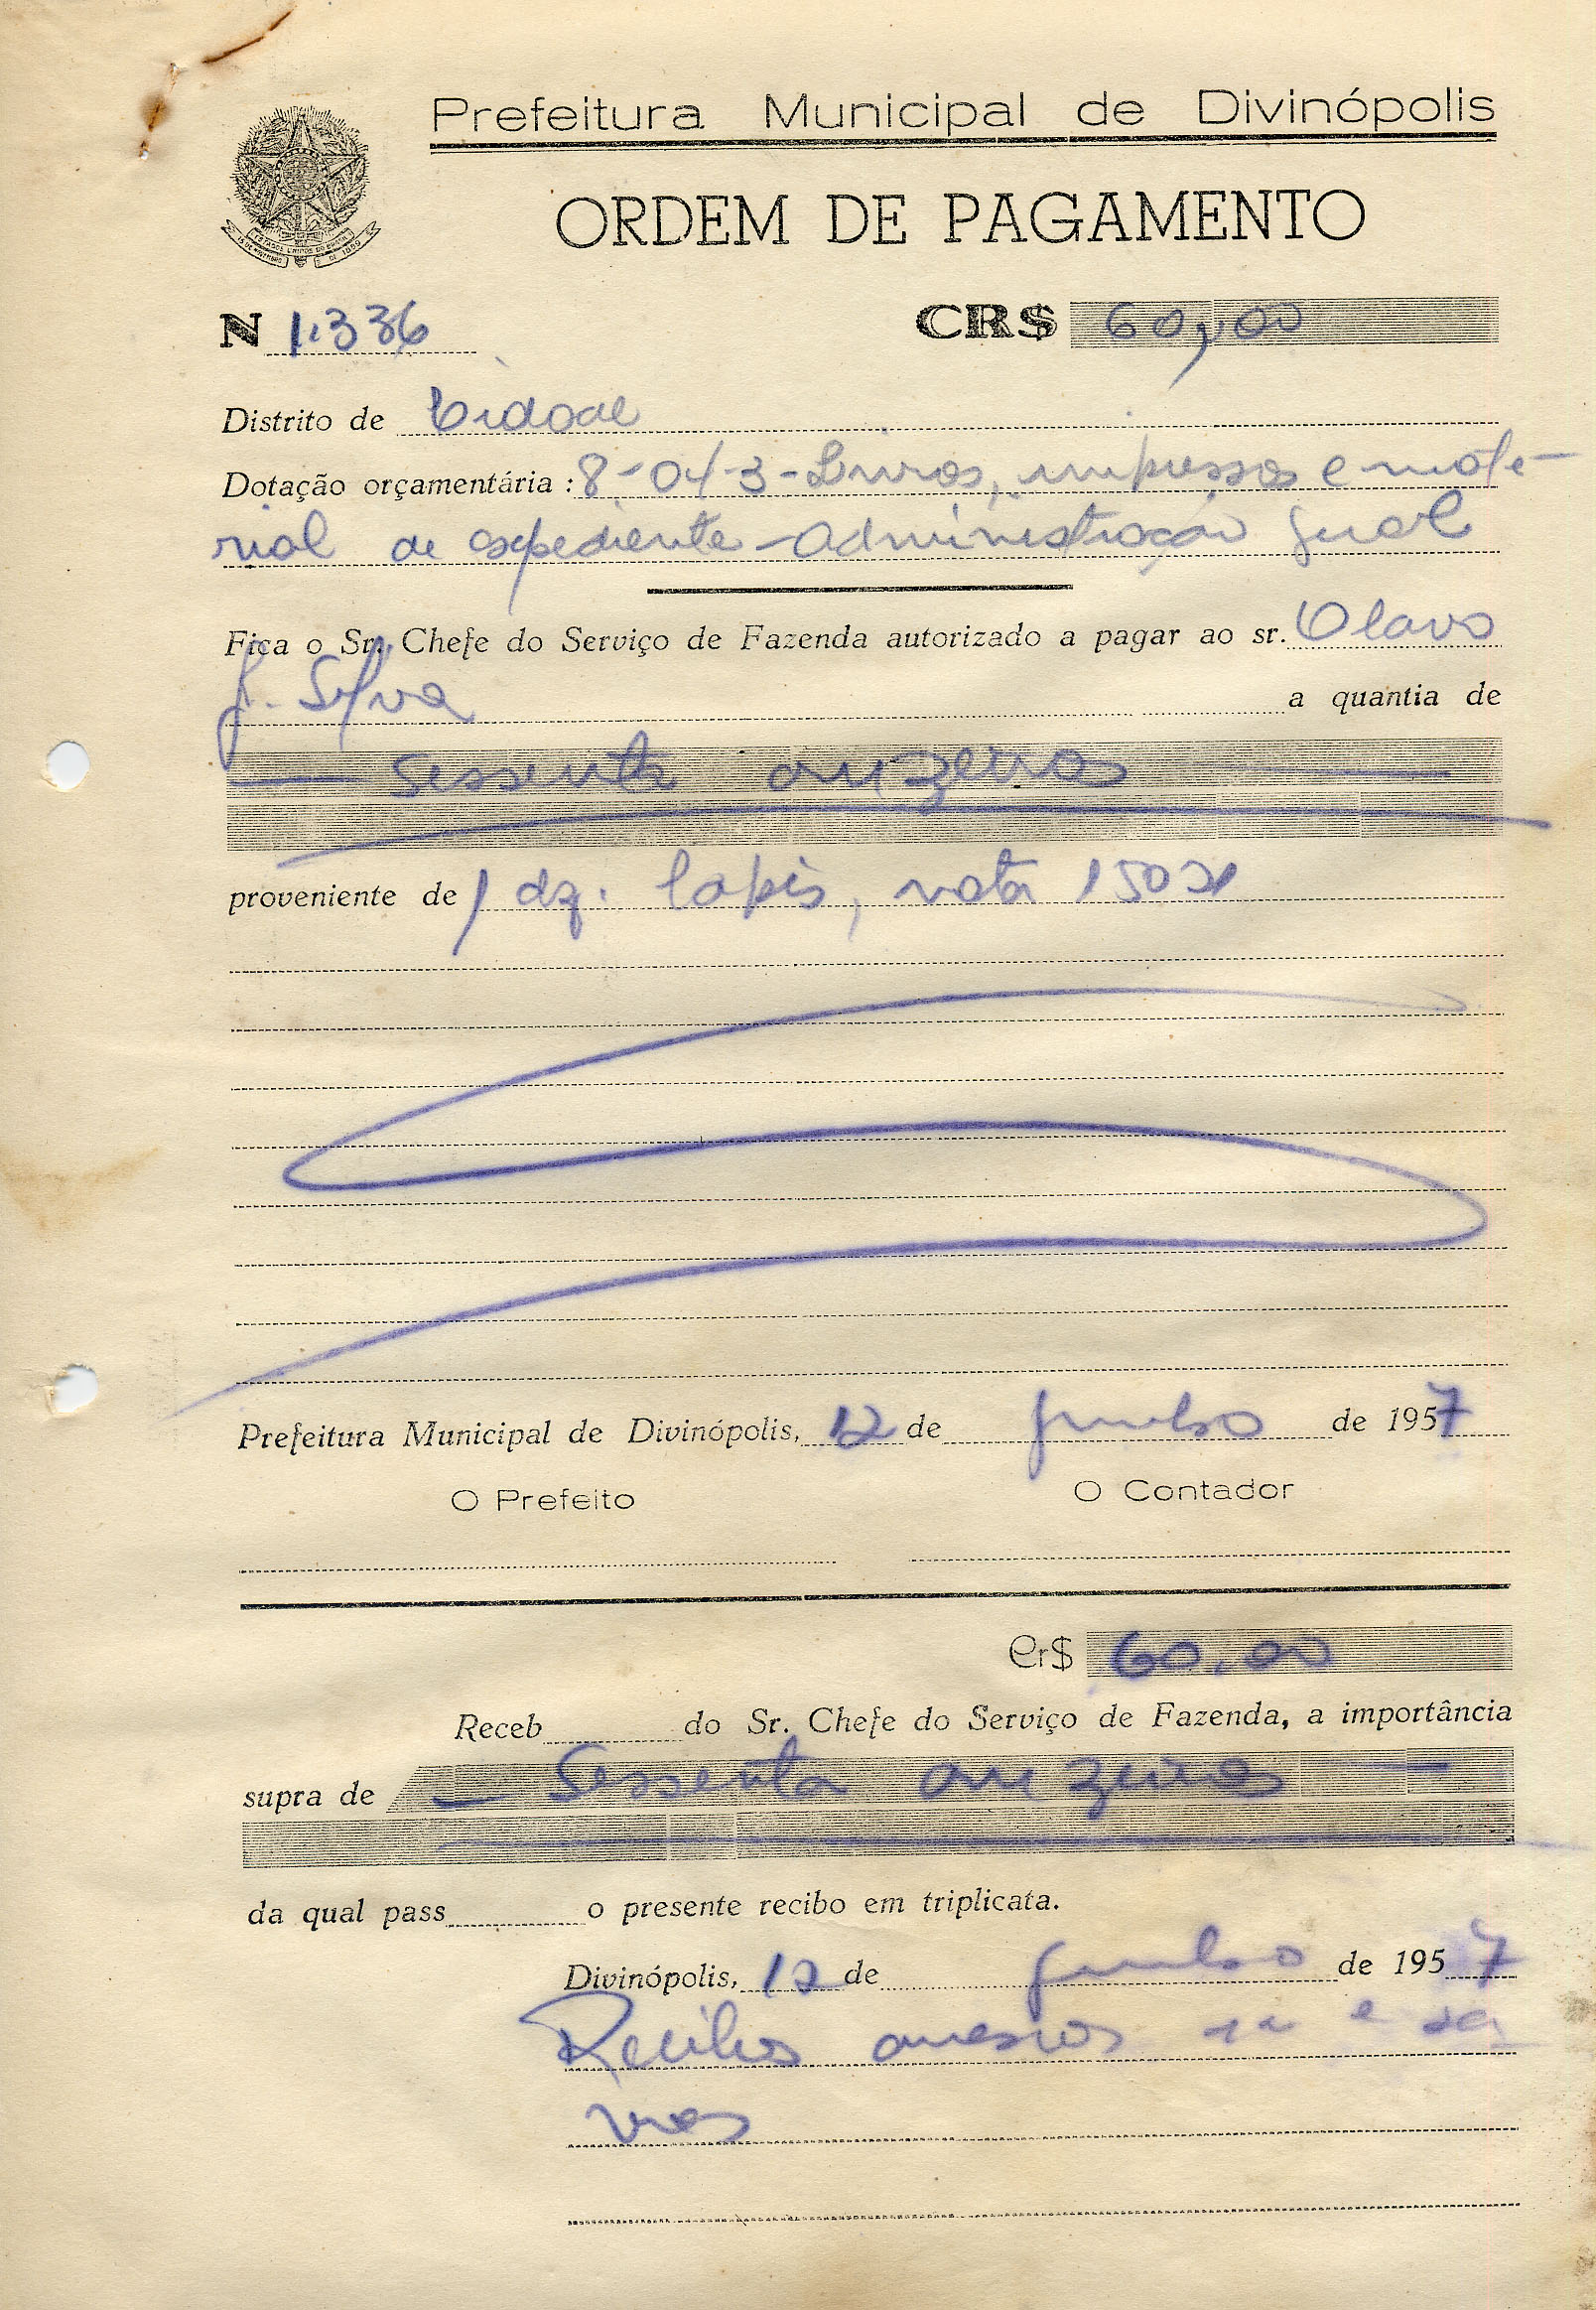 Prefeitura Municipal de Divinópolis
ORDEM DE PAGAMENTO
N 1.336 CR$ 60,00
Distrito de Cidade
Dotação orçamentária: 8-04-3-Livros, impressos e mate-
rial de expediente - Administração geral
Fica o Sr. Chefe do Serviço de Fazenda autorizado a pagar ao sr. Olavo
J. Silva a quantia de
sessenta cruzeiros
proveniente de 1 dz. lapis, nota
Prefeitura Municipal de Divinópolis, 12 de junho de 1957
O Prefeito O Contador
Cr$ 60,00
Receb do Sr. Chefe do Serviço de Fazenda, a importância
supra de Sessenta cruzeiros
da qual pass o presente recibo em triplicata.
Divinópolis, 12 de junho de 1957
Recibos anexos 1a e 2a
vias